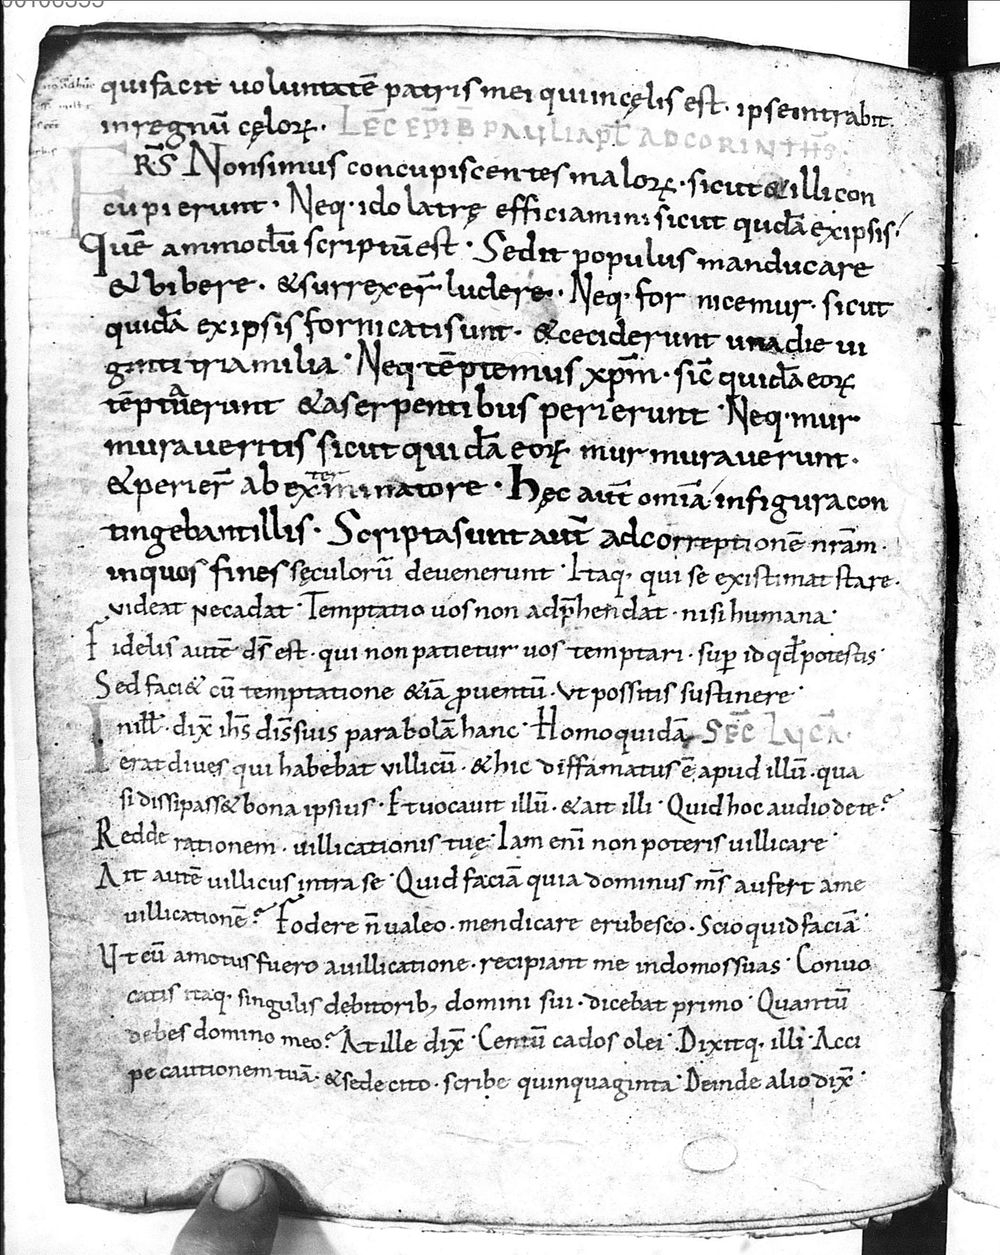 qui facit uoluntatē patris mei qui in cęlis est. ipse intrabit
in regnū cęloꝝ. LEC EPĪB PAULI APĪ AD CORINTHS
FRS̄ Non simus concupiscentes maloꝝ. sicut & illi con
cupierunt. Neq. idolatrę efficiamini sicut quidā ex ipsis.
Quē ammodū scriptū est. Sedit populus manducare
& bibere. & surrexer̄ ludere. Neq. fornicemur. sicut
quidā ex ipsis fornicati sunt. & ceciderunt una die ui
ginti tria milia. Neq. tēptemus xp̄m. sic̄ quidā eoꝝ
tēptauerunt & a serpentibus perierunt. Neq. mur
muraueritis sicut quidā eoꝝ murmurauerunt.
& perier̄ ab exterminatore. Hęc aut̄ omīa in figura con
tingebant illis. Scripta sunt aut̄ ad correptionē nr̄am.
in quos fines sęculorū deuenerunt. Itaq. qui se existimat stare.
uideat ne cadat. Temptatio uos non adp̄hendat. nisi humana.
Fidelis autē ds̄ est. qui non patietur uos temptari. sup̄ id qd̄ potestis
Sed faci& cū temptatione &iā ꝓuentū. Ut possitis sustinere.
In ill̄. dix̄ ih̄s dis̄ suis parabolā hanc. Homo quidā SEC̄ LUCĀ.
erat diues qui habebat uillicū. & hic diffamatus ē apud illū. qua
si dissipass& bona ipsius. Et uocauit illū. & ait illi. Quid hoc audio de te?
Redde rationem. uillicationis tuę. Iam enī non poteris uillicare
Ait autē uillicus intra se. Quid faciā quia dominus m̄s aufert a me
uillicationē? Fodere n̄ ualeo. mendicare erubesco. Scio quid faciā
Ut cū amotus fuero a uillicatione. recipiant me in domos suas. Conuo
catis itaq. singulis debitorib; domini sui. dicebat primo. Quantū
debes domino meo? At ille dix̄. Centū cados olei. Dixitq. illi. Acci
pe cautionem tuā. & sede cito. scribe quinquaginta. Deinde alio dix̄.